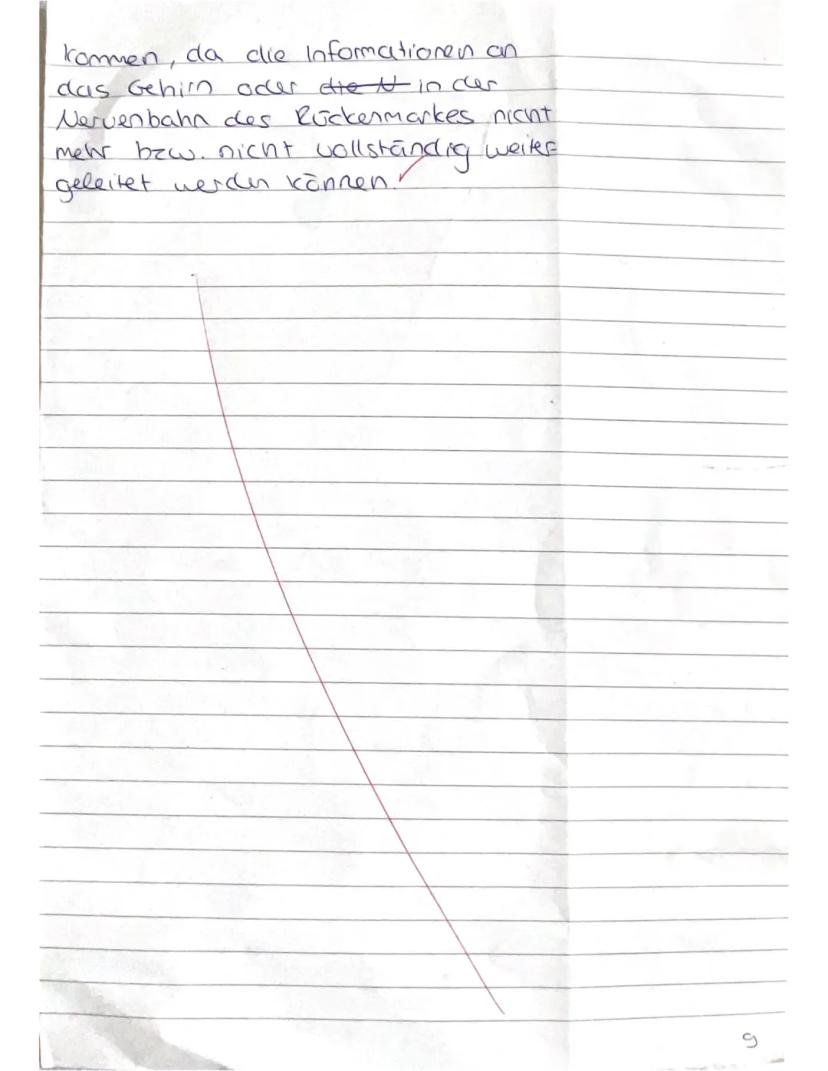 kommen, da die Informationen an
das Gehirn oder ~~die N~~ in der
Nervenbahn des Rückenmarkes nicht
mehr bzw. nicht vollständig weiter
geleitet werden können.
9